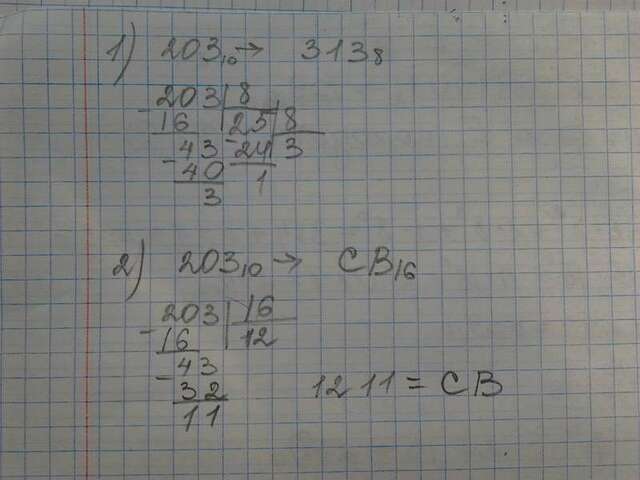 1) 203₁₀ → 313₈
203 | 8
- 16 | 25 | 8
43 - 24 | 3
- 40 1
3
2) 203₁₀ → CB₁₆
203 | 16
- 16 | 12
43
- 32 12 11 = CB
11